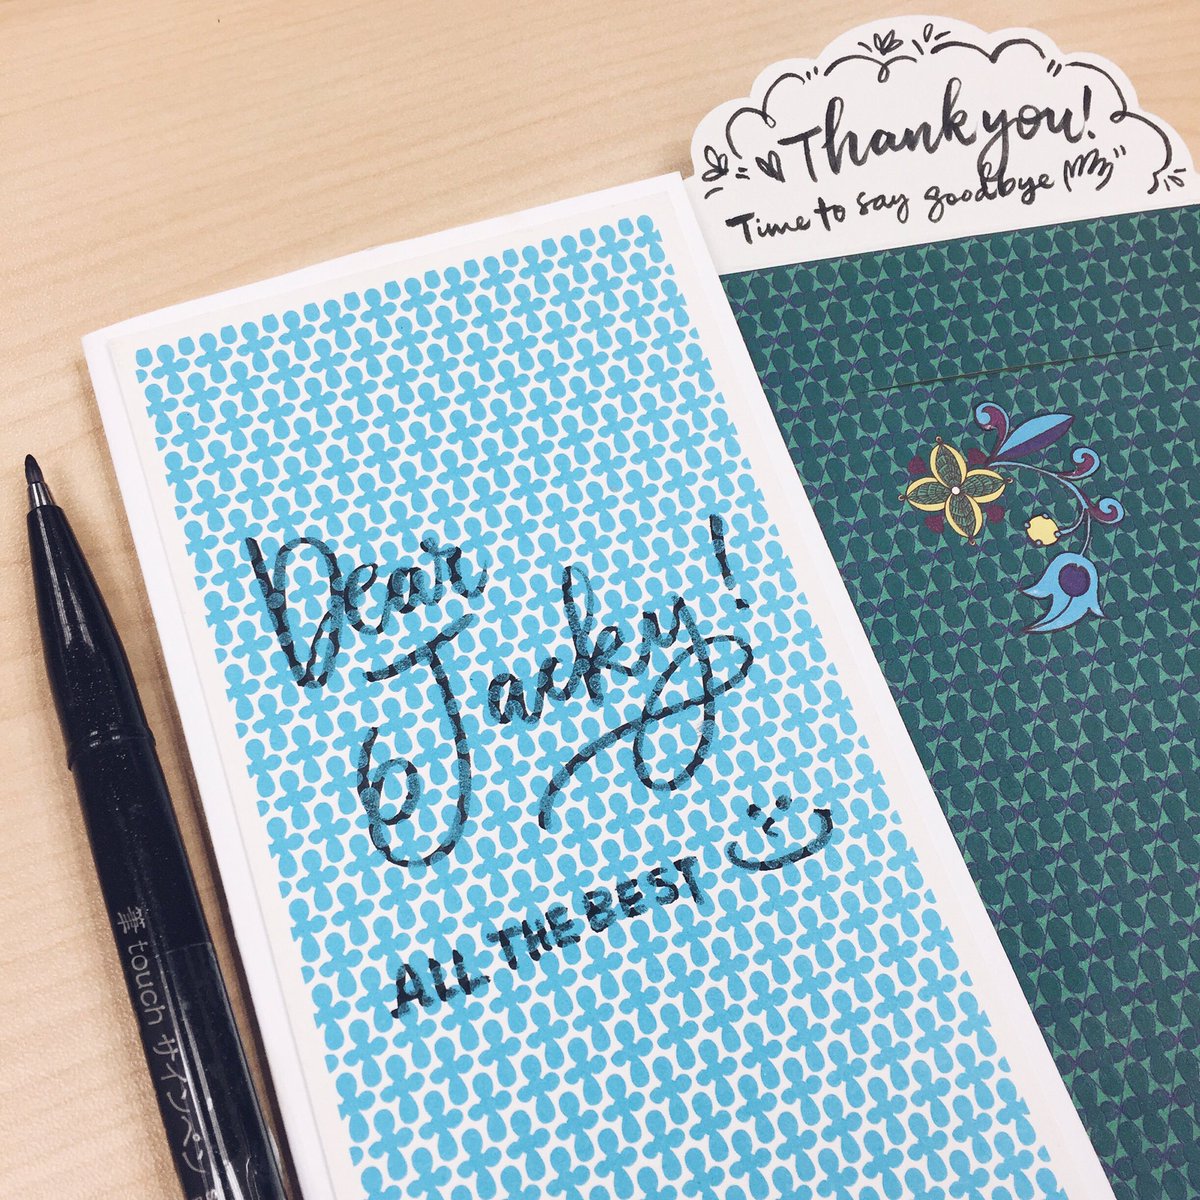 Thank you!
Time to say goodbye
Dear
Jacky!
ALL THE BEST
筆touch サインペン